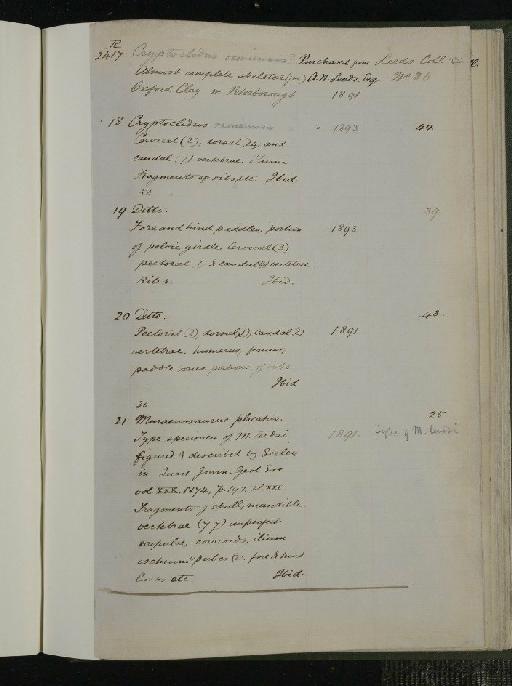 R
2417 Cryptoclidus Purchased from Leeds Coll.
Almost complete skeleton A. N. Leeds, Esq
Oxford Clay nr Peterborough 1891
18 Cryptoclidus 1893 44
Cervical (2), dorsal, 24, and
caudal vertebrae. ilium
Fragments of ribs etc Ibid
19 Ditto. 39
Fore and hind paddles, portion 1893
of pelvic girdle, Cervical (3)
pectoral, & caudal vertebrae
Ribs. Ibid.
20 Ditto. 43
Pectoral (2), dorsal (1), caudal 1891
vertebrae, humerus, femur,
paddle portions of ribs
Ibid
21 Muraenosaurus plicatus. 25
Type specimen of M. leedsi 1891. Type of M. leedsi
figured & described by Seeley
in Quart. Journ. Geol. Soc
vol XXX. 1874, p. 197. pl. XXI
Fragments of skull, mandible
vertebrae (77) imperfect
scapulae, coracoids, ilium
ischium, pubes fore & hind
limbs etc Ibid.